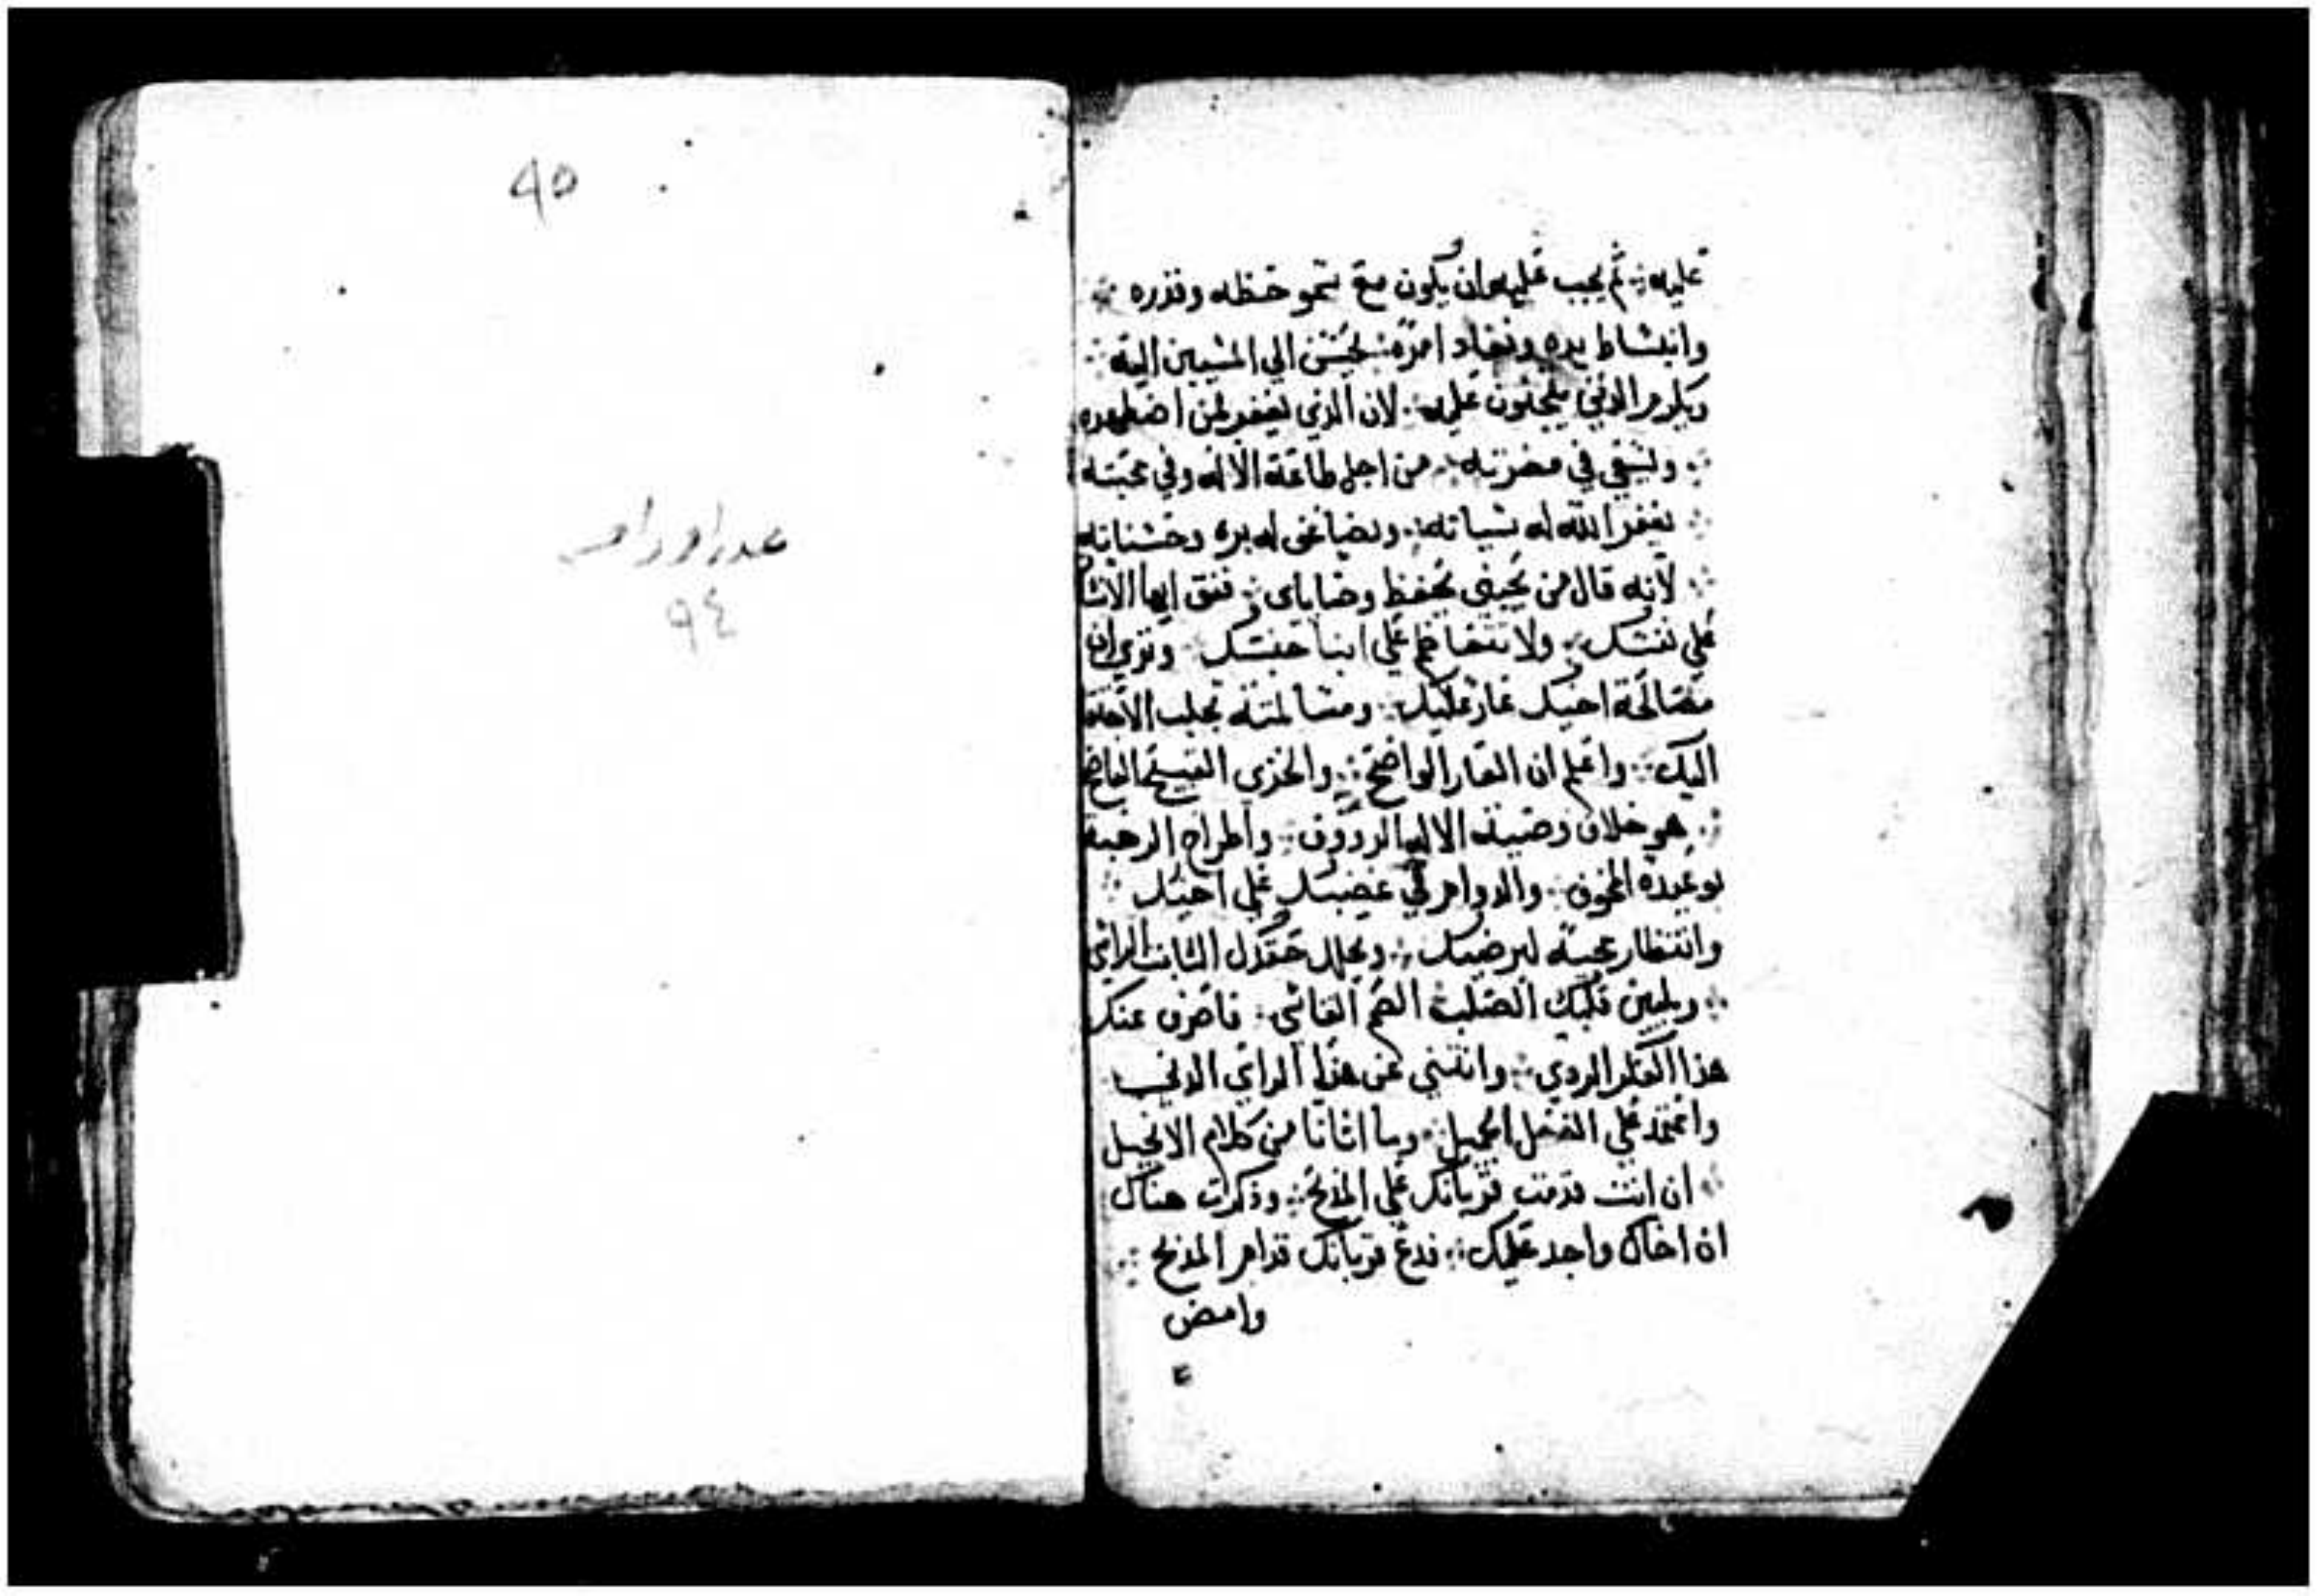 عليه ܀ ثم يجب عليه ان يكون مع سمو حظه وقدره ܀
وانبساط يده ونفاد امره يحسن الي المسيين اليه ܀
ويكرم الذي عليه ܀ لان الذي يغفر لمن اضطهده
܀ ويسعي في مضرته ܀ من اجل طاعة الاله وفي محبته
܀ يغفر الله له سياته ܀ ويضاعف له بره وحسناته
܀ لانه قال من يحبني يحفظ وصاياي ܀
علي نفسك ܀ ولا تتعاظم علي ابنا جنسك ܀ وتري ان
مصالحة اخيك عار عليك ܀ ومسالمته تجلب
اليك ܀ واعلم ان العار الواضح ܀ والخزي القبيح الفاضح
܀ هو خلاف وصية الاله الرووف ܀ واطراح الرهبة
لوعيده المخوف ܀ والدوام في غضبك علي اخيك ܀
وانتظار مجيه ليرضيك ܀ ويحلل حقدك الثابت الراسي
܀ ويلين قلبك الصلب الصم القاسي ܀ فاصرف عنك
هذا الفكر الردي ܀ وانثني عن هذا الراي الدني
واعتمد علي الفعل الجميل ܀ وما اتانا من كلام الانجيل
܀ ان انت قدمت قربانك علي المذبح ܀ وذكرت هناك
ان اخاك واجد عليك ܀ فدع قربانك قدام المذبح ܀
وامض
٩٥
عدد اوراقه
٩٤